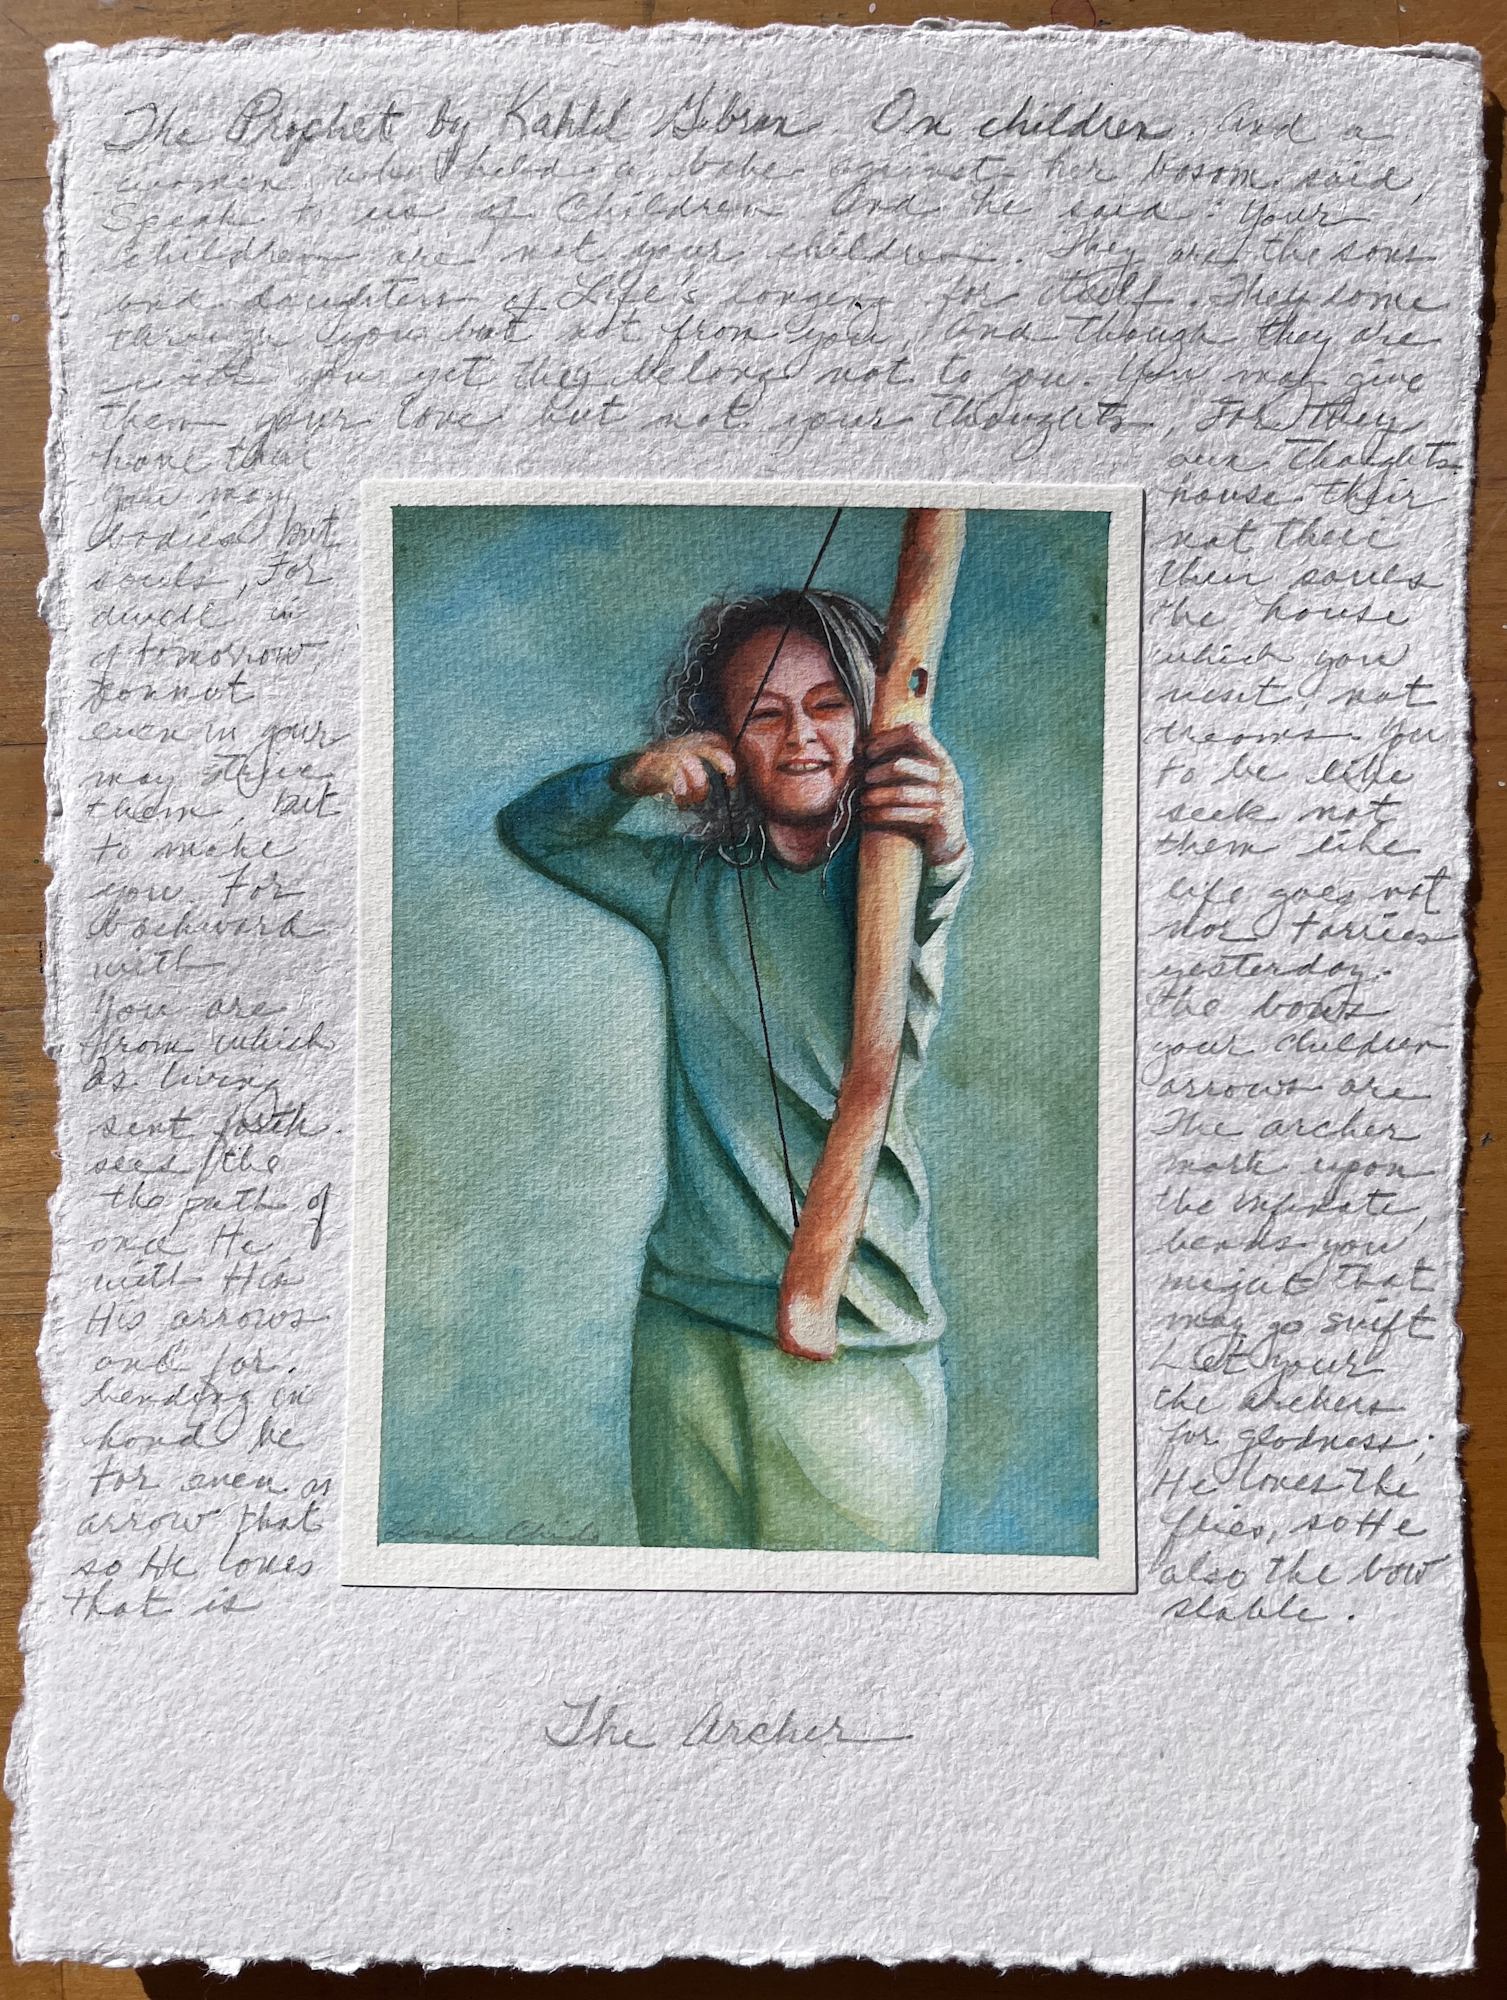 The Prophet by Kahlil Gibran. On children. And a
women who held a babe against her bosom said,
Speak to us of Children And he said: Your
children are not your children. They are the sons
and daughters of Life's longing for itself. They come
through you but not from you, And though they are
with you yet they belong not to you. You may give
them your love but not your thoughts, For they
have their own thoughts.
You may house their
bodies but not their
souls, For their souls
dwell in the house
of tomorrow, which you
cannot visit, not
even in your dreams. You
may strive to be like
them, but seek not
to make them like
you. For life goes not
backward nor tarries
with yesterday.
You are the bows
from which your children
as living arrows are
sent forth. The archer
sees the mark upon
the path of the infinite,
and He bends you
with His might that
His arrows may go swift
and far. Let your
bending in the archers
hand be for gladness;
For even as He loves the
arrow that flies, so He
so He loves also the bow
that is stable.
The Archer